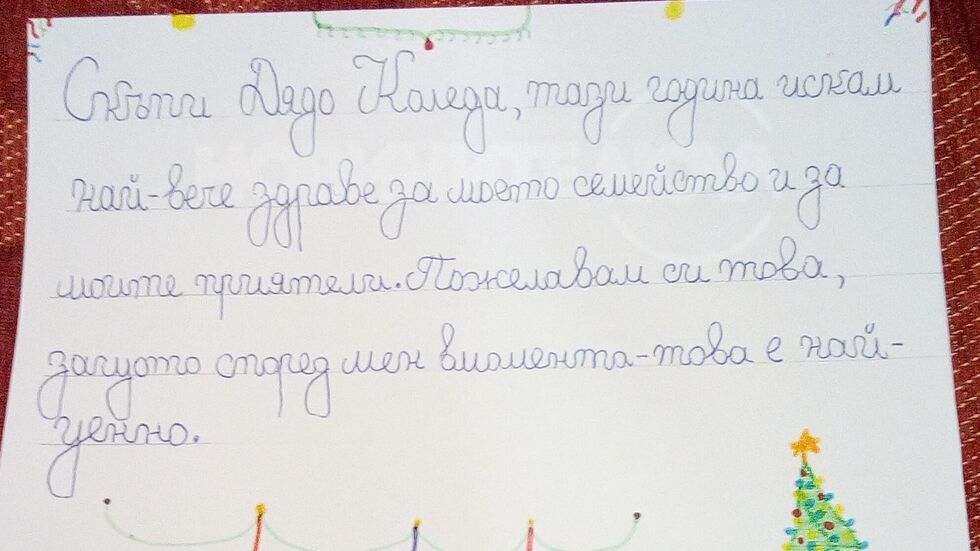 Скъпи Дядо Коледа, тази година искам
най-вече здраве за моето семейство и за
моите приятели. Пожелавам си това,
защото според мен в момента-това е най-
ценно.